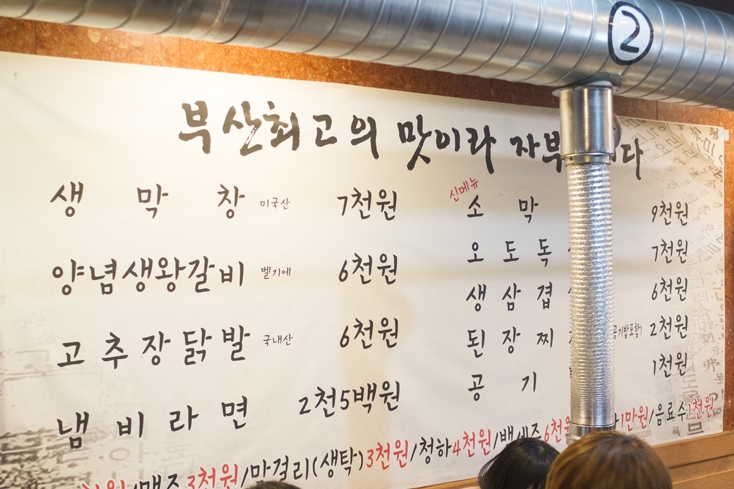 ②
부산최고의 맛이라 자부 다
생 막 창 미국산 7천원
양념생왕갈비 벨기에 6천원
고추장닭발 국내산 6천원
냄비라면 2천5백원
신메뉴
소 막 9천원
오도독 7천원
생삼겹 6천원
된장찌 공기밥포함) 2천원
공 기 1천원
맥주3천원/막걸리(생탁)3천원/청하4천원/백세주6천원 1만원/음료수1천원